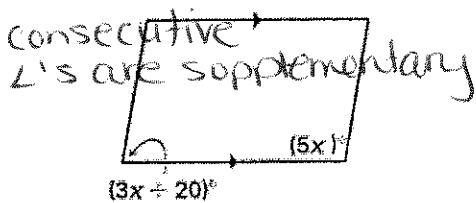 consecutive
∠'s are supplementary
(5x)°
(3x + 20)°